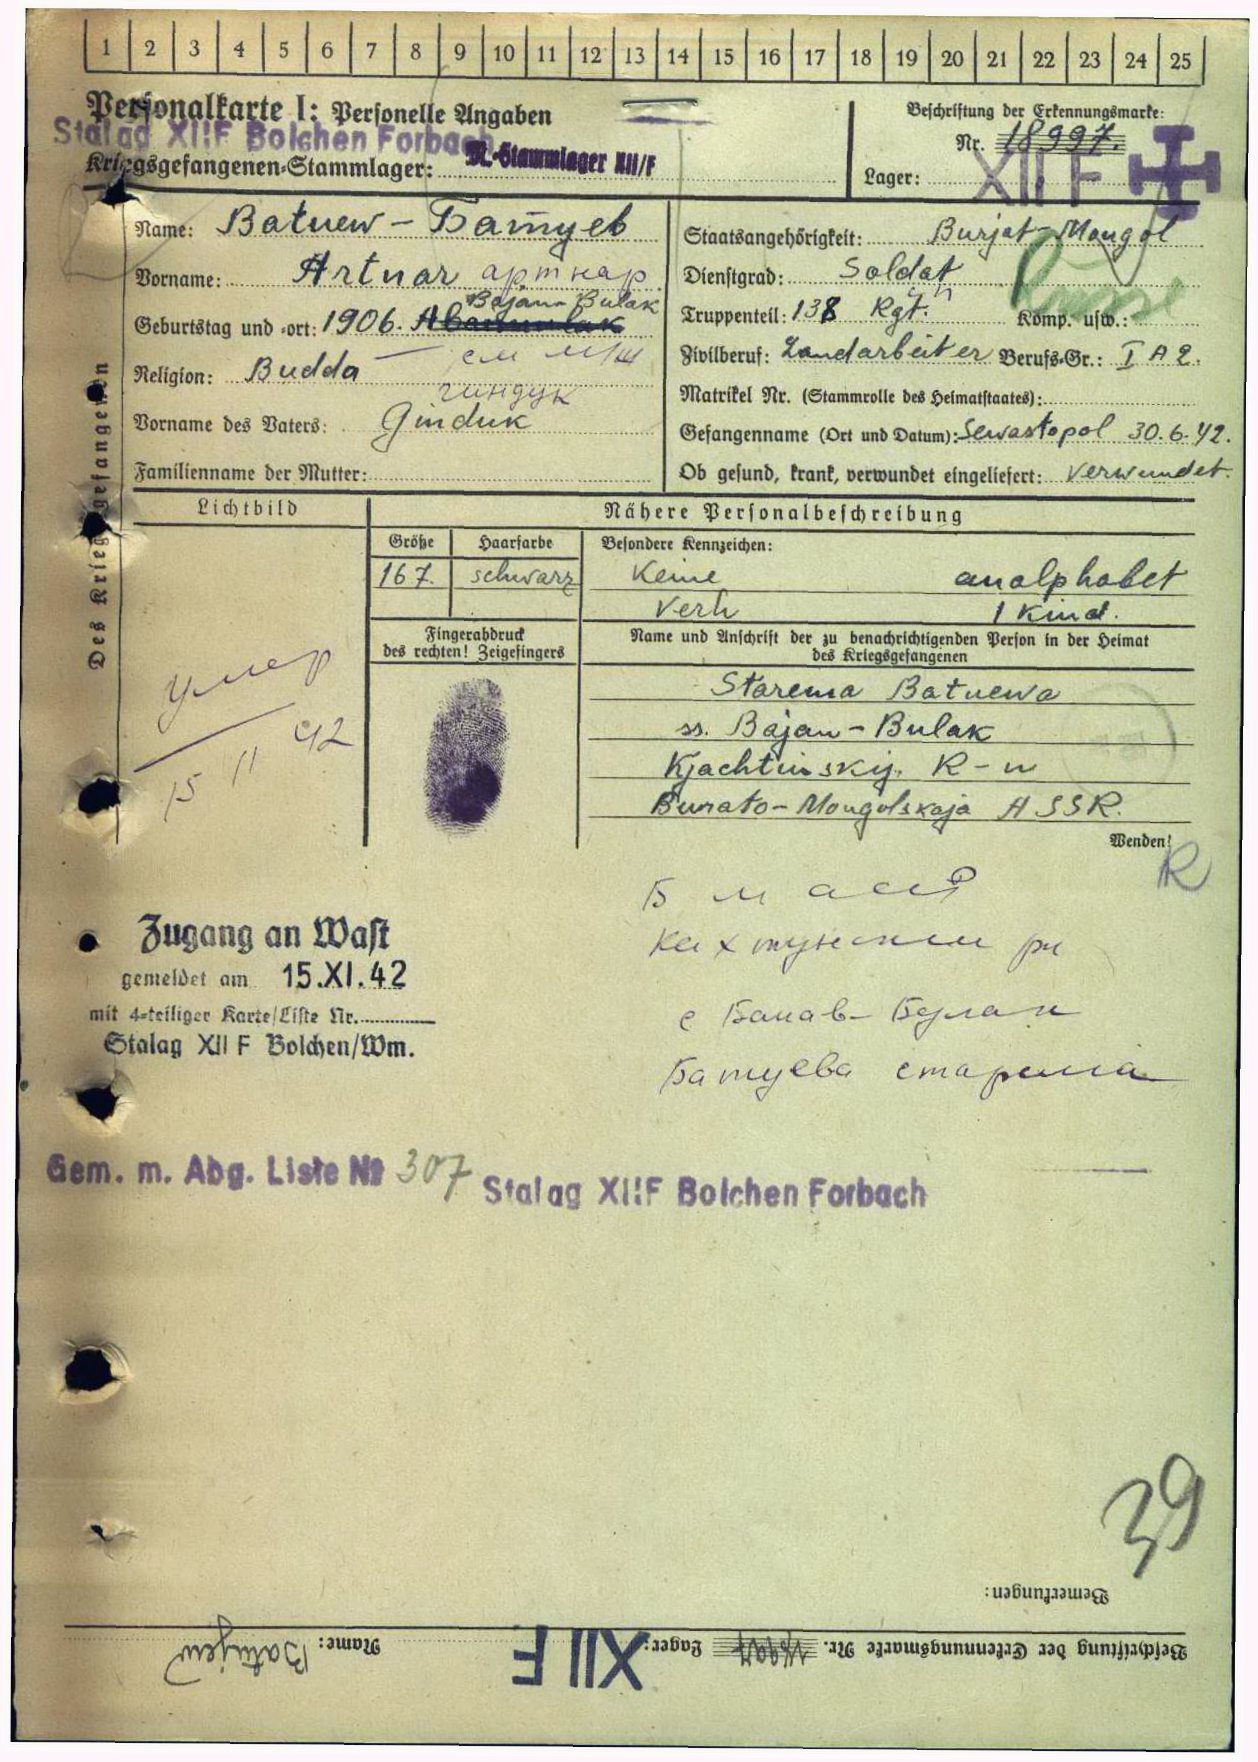 1 2 3 4 5 6 7 8 9 10 11 12 13 14 15 16 17 18 19 20 21 22 23 24 25
Personalkarte I: Personelle Angaben
Beschriftung der Erkennungsmarke:
Stalag XIIF Bolchen Forbach
Nr. 18997.
Kriegsgefangenen-Stammlager: M.-Stammlager XII/F
Lager: XII F
Des Kriegsgefangenen
Name: Batuew - Батуев
Vorname: Artnar артнар
Bajan-Bulak
Geburtstag und -ort: 1906.
Religion: Budda
гиндук
Vorname des Vaters: Ginduk
Familienname der Mutter:
Staatsangehörigkeit: Burjat-Mongol
Dienstgrad: Soldat
Russe
Truppenteil: 138 Rgt. Komp. usw.:
Zivilberuf: Landarbeiter Berufs-Gr.: I A 2.
Matrikel Nr. (Stammrolle des Heimatstaates):
Gefangenname (Ort und Datum): Sewastopol 30.6.42.
Ob gesund, krank, verwundet eingeliefert: verwundet.
Lichtbild
Nähere Personalbeschreibung
Größe Haarfarbe Besondere Kennzeichen:
167. schwarz Keine analphabet
Verh 1 Kind.
Fingerabdruck
des rechten! Zeigefingers
Name und Anschrift der zu benachrichtigenden Person in der Heimat
des Kriegsgefangenen
Starema Batuewa
ss. Bajan-Bulak
Kjachtinskij. R-n
Burato-Mongolskaja ASSR.
Wenden!
умер
15 11 42
R
Б м асс
р
с Баиав-Булак
Батуева старема
Zugang an Wast
gemeldet am 15.XI.42
mit 4-teiliger Karte/Liste Nr.
Stalag XII F Bolchen/Wm.
Gem. m. Abg. Liste № 307 Stalag XIIF Bolchen Forbach
39
Bemerkungen:
Beschriftung der Erkennungsmarke Nr. 18997 Lager: XII F Name: Batujew